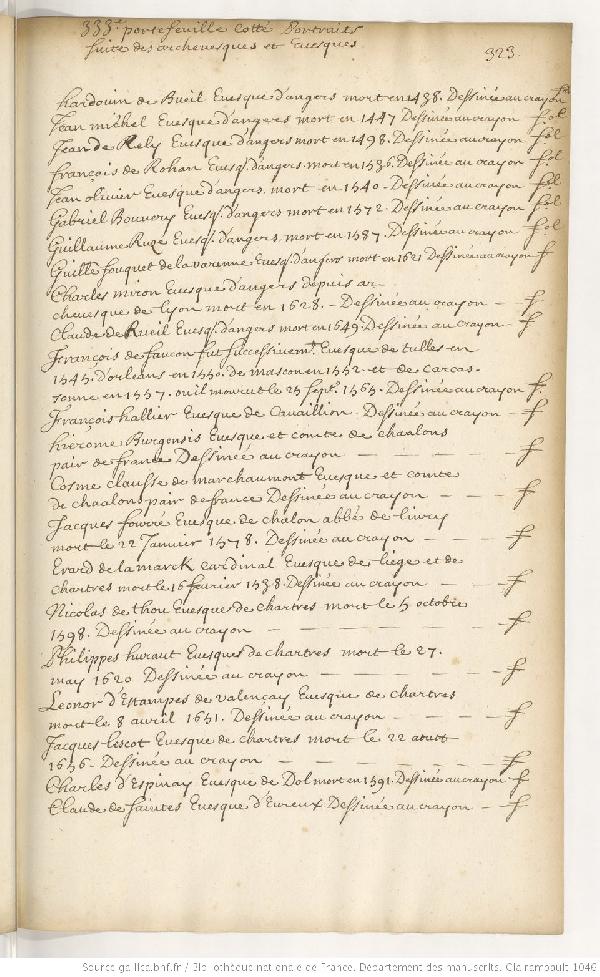 333e portefeuille cotté Portraits
suite des archeuesques et Euesques
323
hardouin de Bueil Euesque d'angers mort en 1438. Dessinée au crayon fol
Jean michel Euesque d'angers mort en 1447 Dessinée au crayon fol
Jean de Rely Euesque d'angers mort en 1498. Dessinée au crayon fol
françois de Rohan Euesq. d'angers mort en 1536 Dessinée au crayon fol
Jean oliuier Euesque d'angers mort en 1540 - Dessinée au crayon fol
Gabriel Bouuery Euesq. d'angers mort en 1572. Dessinée au crayon fol
Guillaume Ruzé Euesq. d'angers mort en 1587. Dessinée au crayon fol
Guille fouquet de la varenne Euesq. d'angers mort en 1621 Dessinée au crayon f
Charles miron Euesque d'angers depuis ar-
cheuesque de lyon mort en 1628. - Dessinée au crayon - f
Claude de Rueil Euesq. d'angers mort en 1649. Dessinée au crayon - f
François de faucon fut successiuemt. Euesque de tulles en
1545. d'orleans en 1550. de mascon en 1552 - et de carcas-
sonne en 1557. ou il mourut le 25 sept. 1565. Dessinée au crayon f
François hallier Euesque de Cauaillion - Dessinée au crayon - f
hierôme Burgensis Euesque et comte de chaalons
pair de france Dessinée au crayon - - - - f
Cosme clausse de marchaumont Euesque et comte
de chaalons pair de france Dessinée au crayon - - - f
Jacques fourré Euesque de chalon abbé de liury
mort le 22 Januier 1578. Dessinée au crayon - - - f
Erard de la marck cardinal Euesque de liege et de
chartres mort le 16 feurier 1538. Dessinée au crayon - - - f
Nicolas de thou Euesque de chartres mort le 5 octobre
1598. Dessinée au crayon - - - - - - f
Philippes huraut Euesques de chartres mort le 27.
may 1620 Dessinée au crayon - - - - - f
Leonor d'Estampes de valençay Euesque de chartres
mort le 8 auril 1651. Dessinée au crayon - - - - f
Jacques lescot Euesque de chartres mort le 22 aoust
1656 - Dessinée au crayon - - - - - f
Charles d'Espinay Euesque de Dol mort en 1591. Dessinée au crayon f
Claude de saintes Euesque d'Eureux Dessinée au crayon - f
Source gallica.bnf.fr / Bibliothèque nationale de France. Département des manuscrits. Clairambault 1046